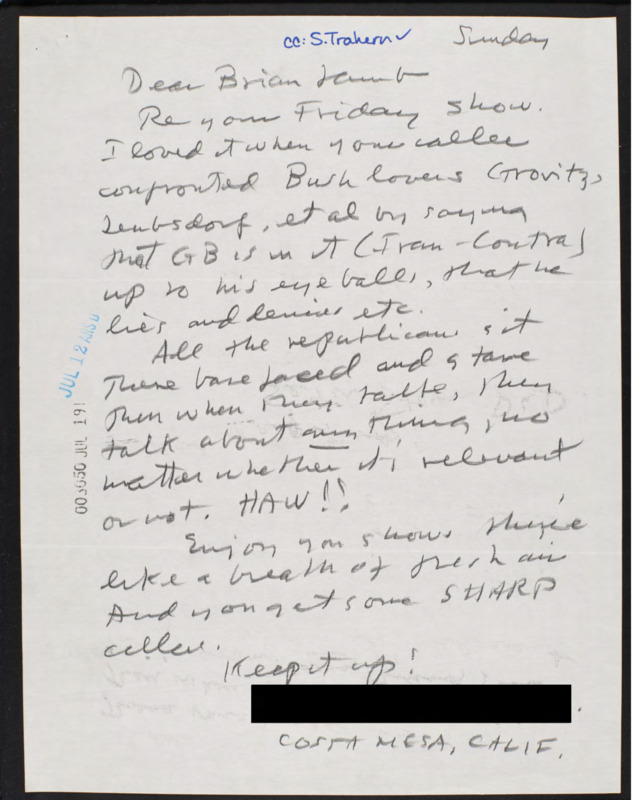 cc: S. Trahern ✓ Sunday
Dear Brian Lamb
Re your Friday show.
I loved it when your caller
confronted Bush lovers Grovitz,
Leubsdorf, et al by saying
that GB is in it (Iran-Contra)
up to his eyeballs, that he
lies and denies etc.
All the republicans sit
there bare faced and stare
then when they talk, they
talk about any thing, no
matter whether it's relevant
or not. HAW!!
Enjoy you shows they're
like a breath of fresh air
And you get some SHARP
caller.
Keep it up!
COSTA MESA, CALIF.
JUL 12
003050 JUL 19